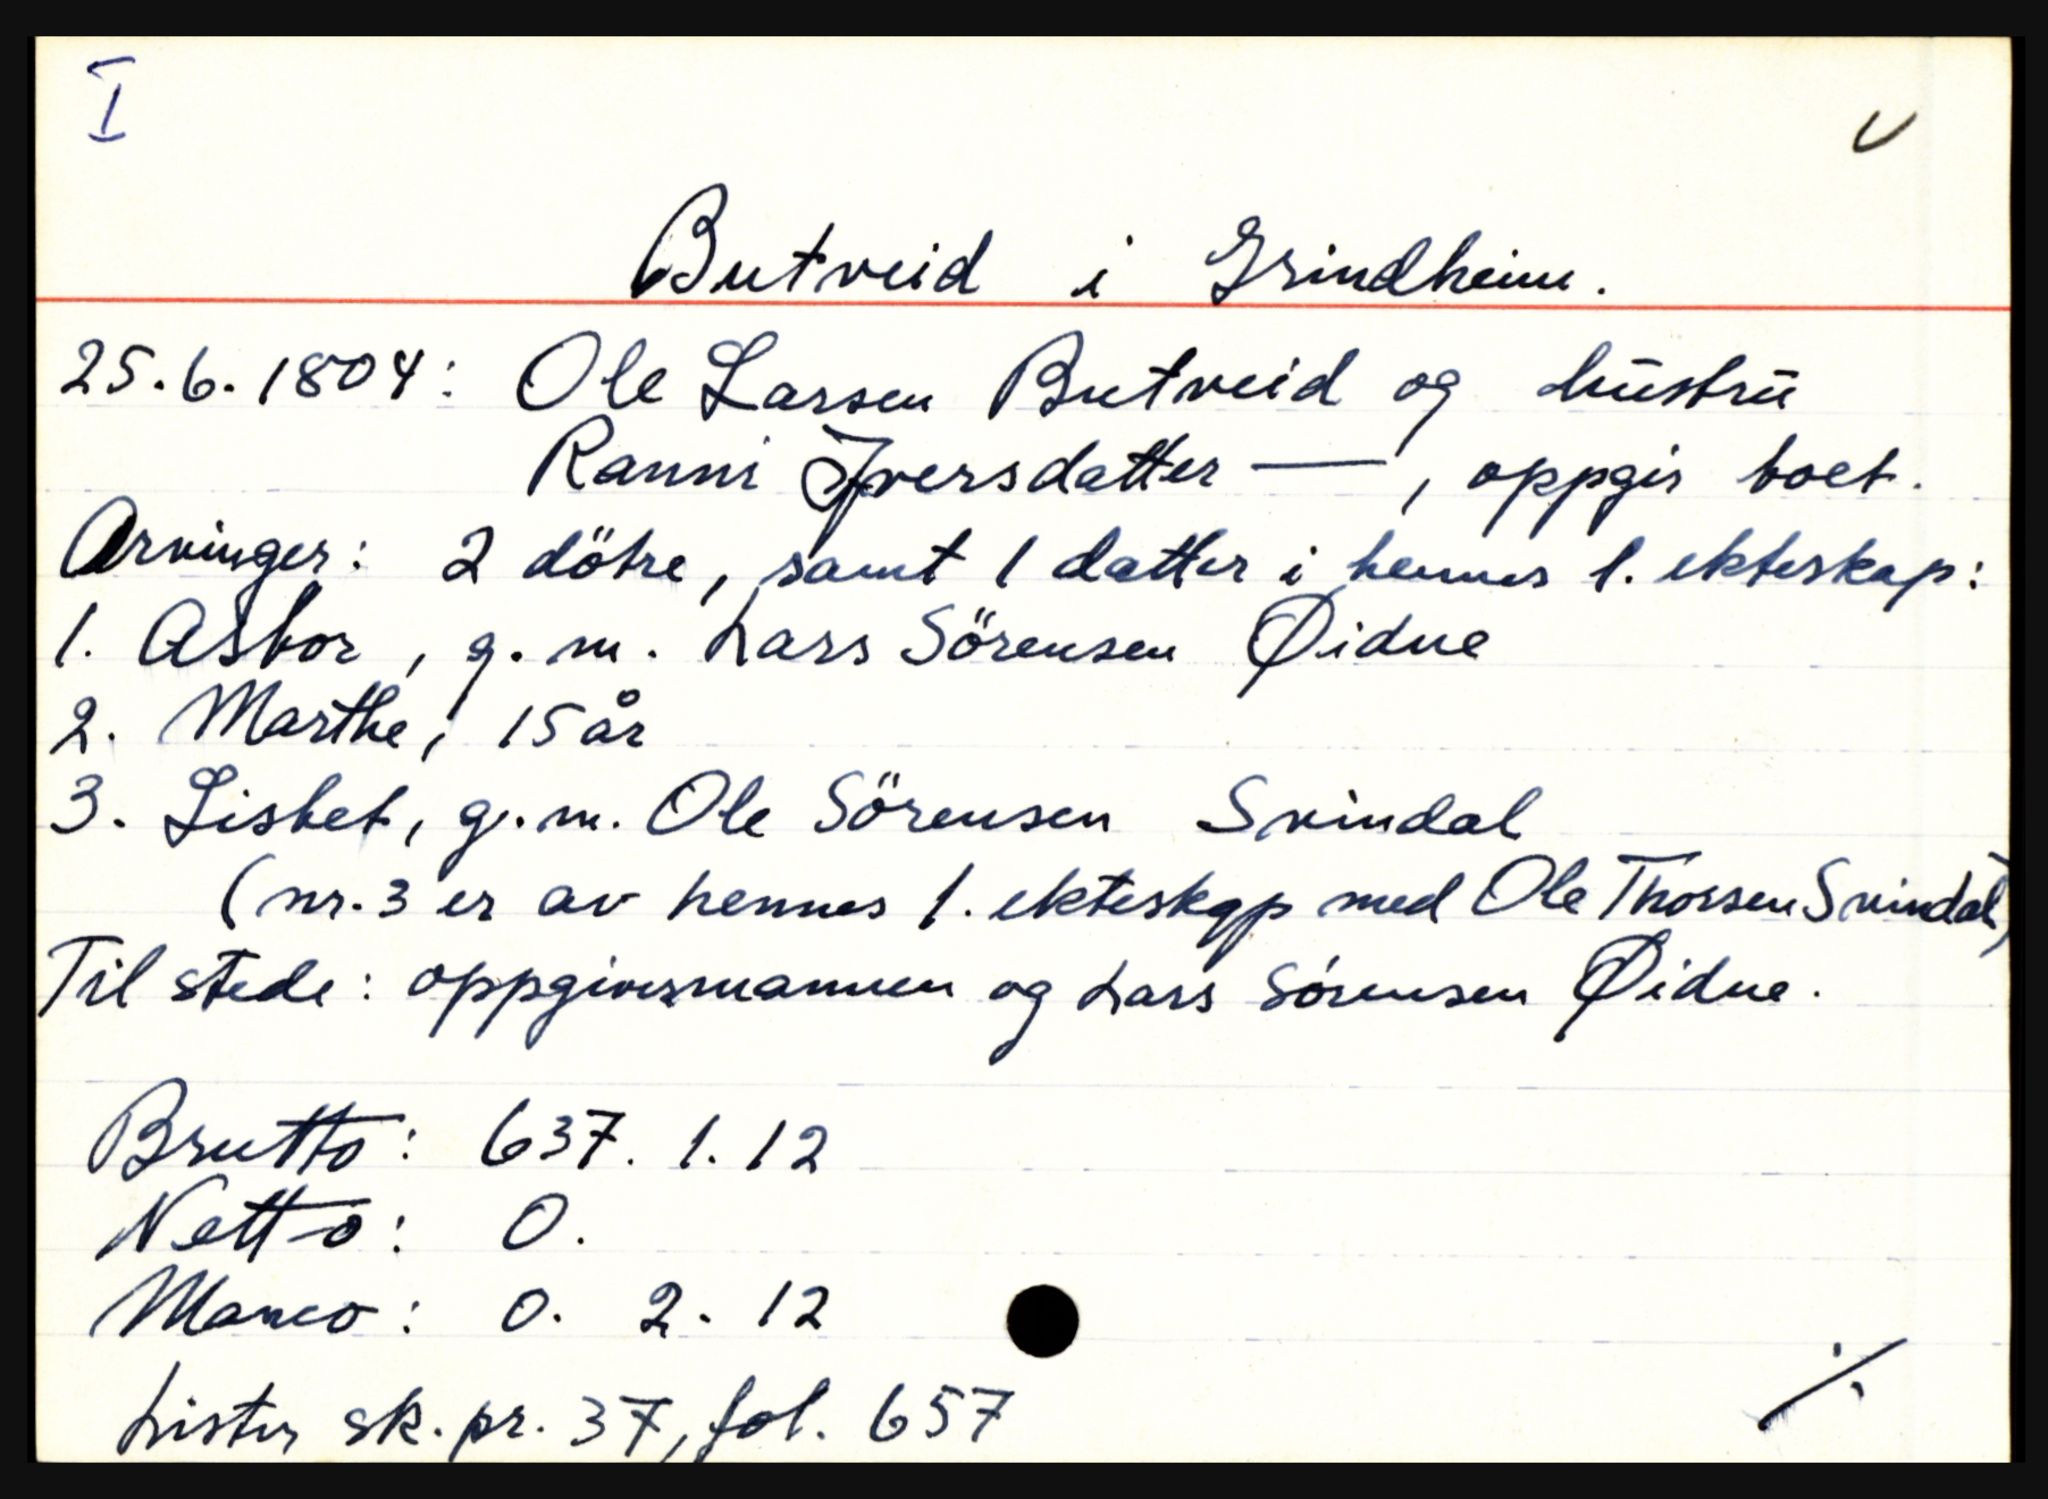 I
Butveid i Grindheim.
25.6.1804: Ole Larsen Butveid og hustru
Ranni Iversdatter —, oppgir boet.
Arvinger: 2 dötre, samt 1 datter i hennes 1. ekteskap:
1. Asbor, g.m. Lars Sörensen Øidne
2. Marthe, 15 år
3. Lisbet, g.m. Ole Sörensen Svindal
(nr. 3 er av hennes 1. ekteskap med Ole Thorsen Svindal)
Til stede: oppgivesmannen og Lars Sörensen Øidne.
Brutto: 637. 1. 12
Netto: 0.
Manco: 0. 2. 12
Lister sk. pr. 37, fol. 657